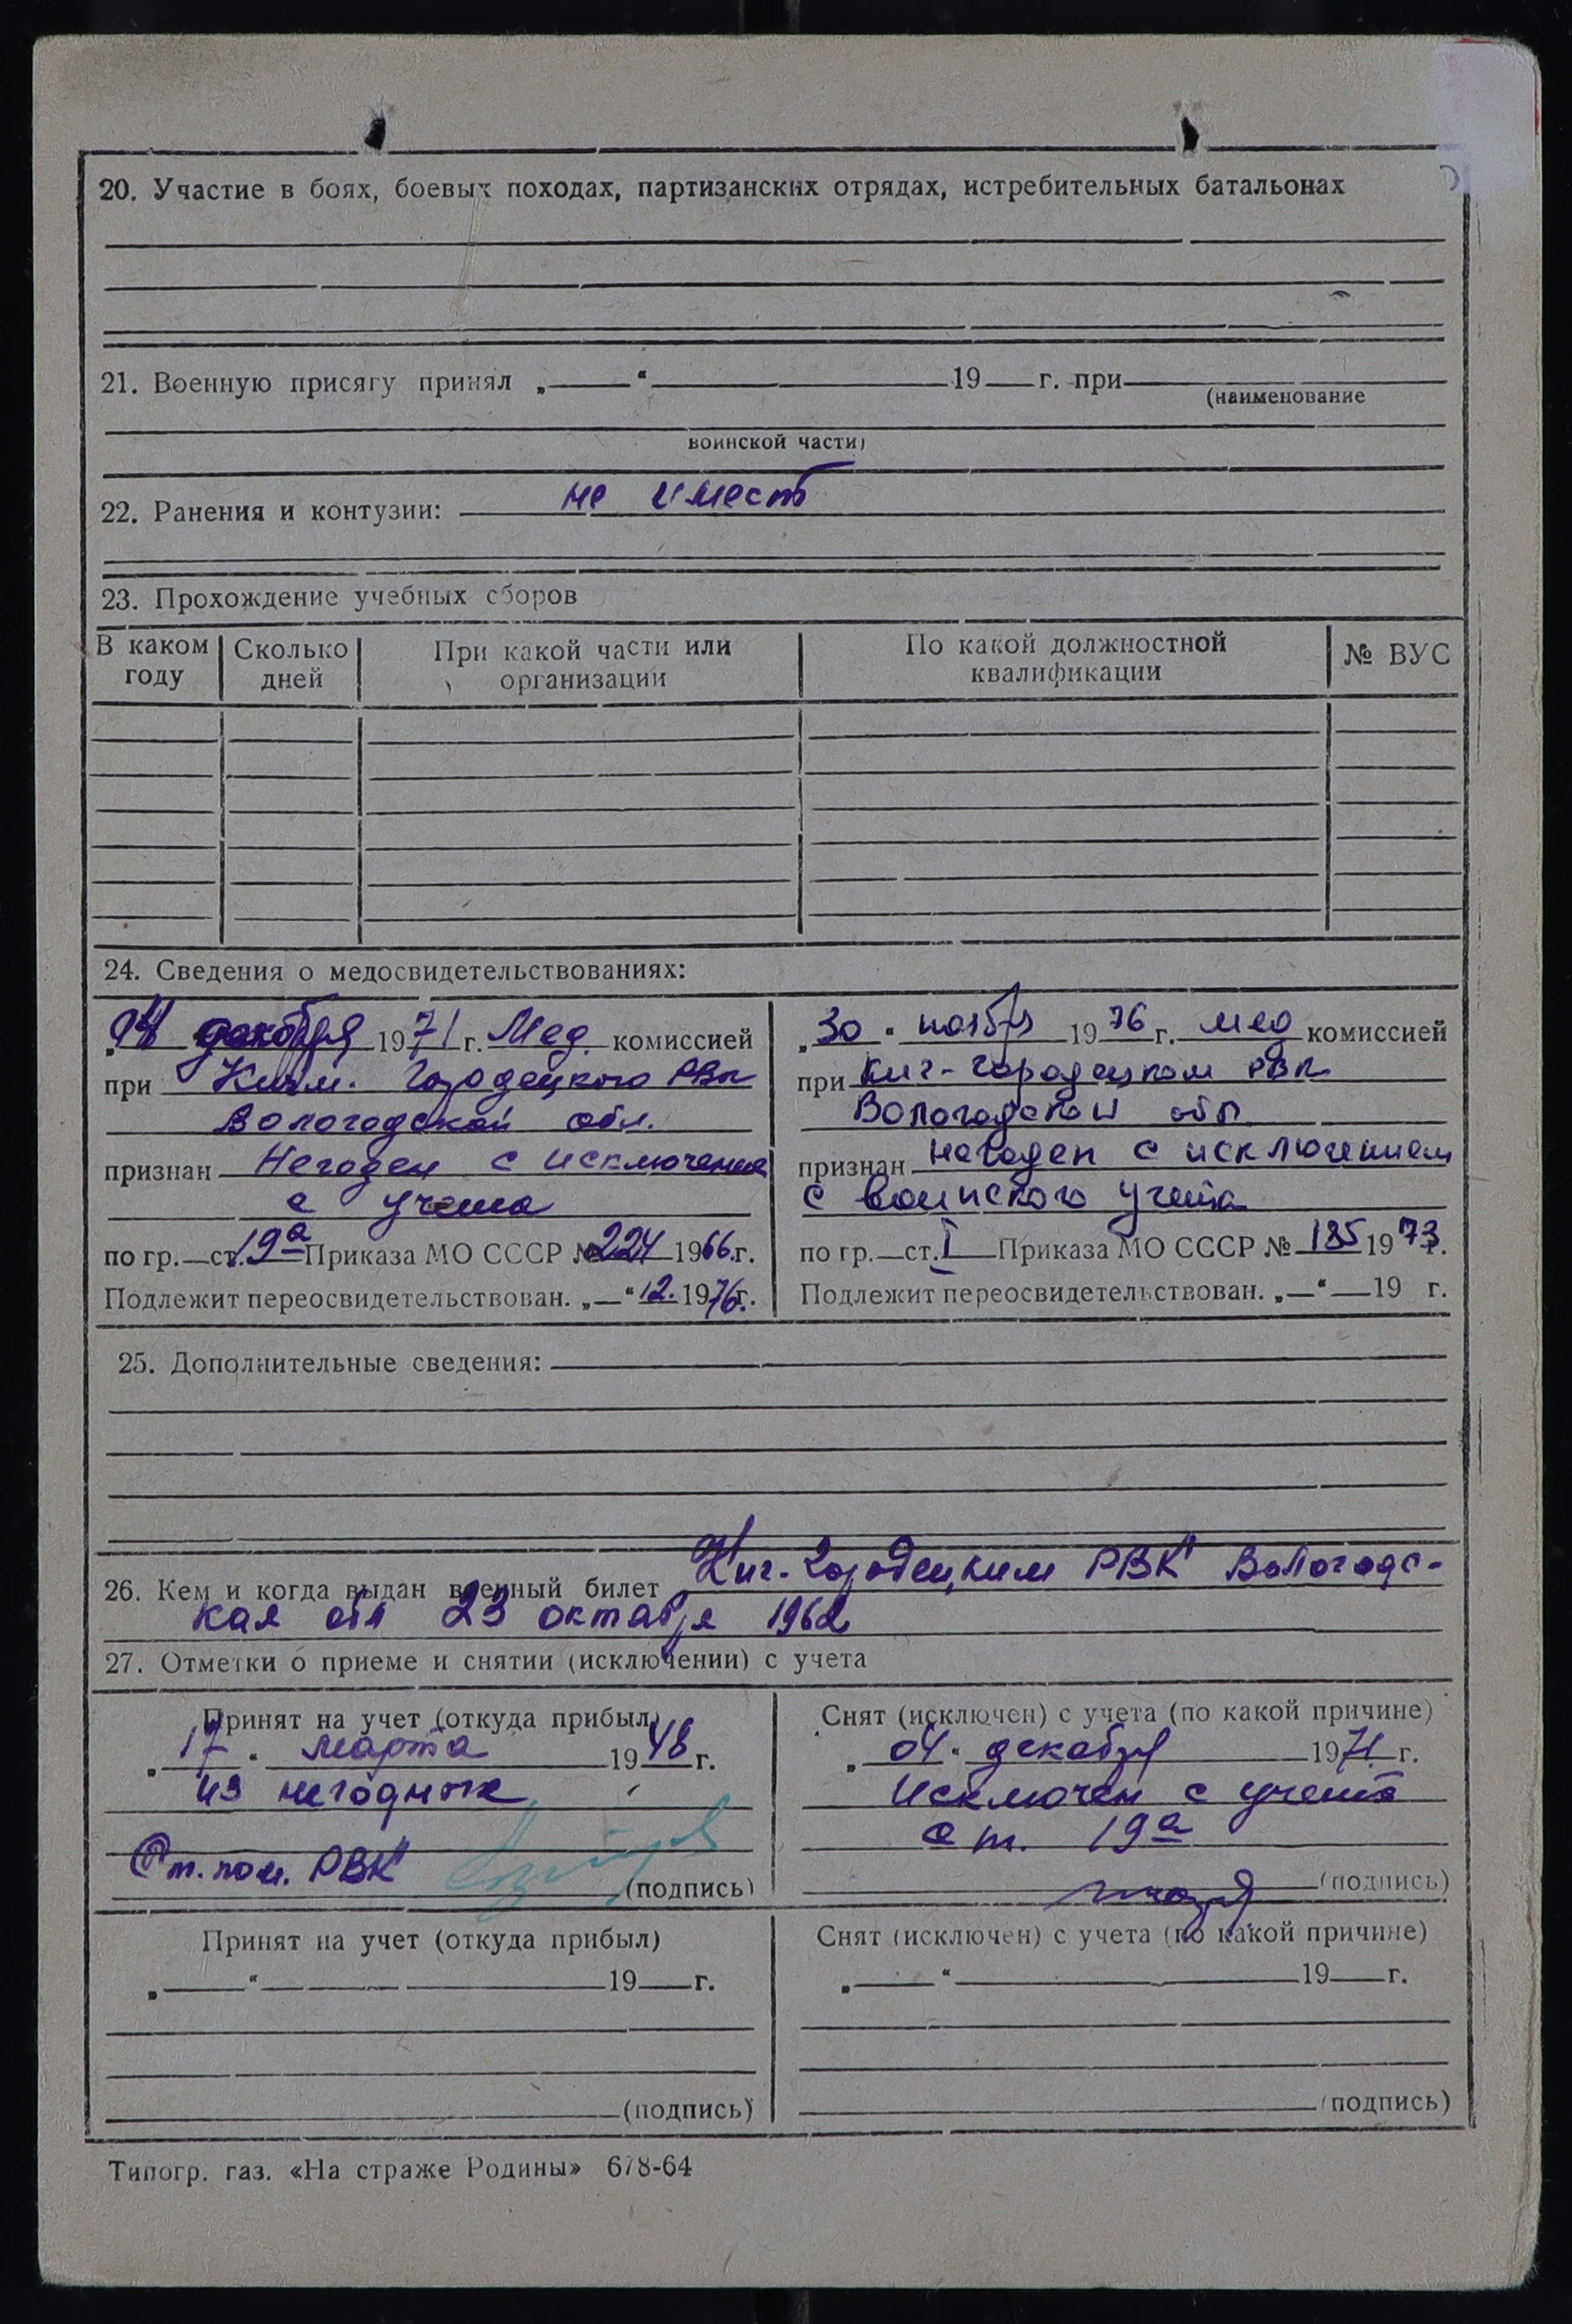 20. Участие в боях, боевых походах, партизанских отрядах, истребительных батальонах
21. Военную присягу принял „ “ 19 г. при
(наименование
воинской части)
22. Ранения и контузии: не имеет
23. Прохождение учебных сборов
В каком году Сколько дней При какой части или организации По какой должностной квалификации № ВУС
24. Сведения о медосвидетельствованиях:
„04 декабря 1971 г. Мед. комиссией
при Кичм. Городецкого РВк
Вологодской обл.
признан Негоден с исключение
с учета
по гр. ст. 19а Приказа МО СССР № 224 1966 г.
Подлежит переосвидетельствован. „ “ 12. 1976 г.
„30 “ ноября 1976 г. мед комиссией
при Кич-Городецком РВК
Вологодской обл
признан негоден с исключением
с воинского учета
по гр. ст. I Приказа МО СССР № 185 1973 г.
Подлежит переосвидетельствован. „ “ 19 г.
25. Дополнительные сведения:
26. Кем и когда выдан военный билет Кич-Городецким РВК Вологодс-
кая обл 23 октября 1962
27. Отметки о приеме и снятии (исключении) с учета
Принят на учет (откуда прибыл)
„17 “ марта 1948 г.
из негодных
Ст. пом. РВК
(подпись)
Снят (исключен) с учета (по какой причине)
„04 “ декабря 1971 г.
Исключен с учета
ст. 19а
(подпись)
Принят на учет (откуда прибыл)
„ “ 19 г.
(подпись)
Снят (исключен) с учета (по какой причине)
„ “ 19 г.
(подпись)
Типогр. газ. «На страже Родины» 678-64